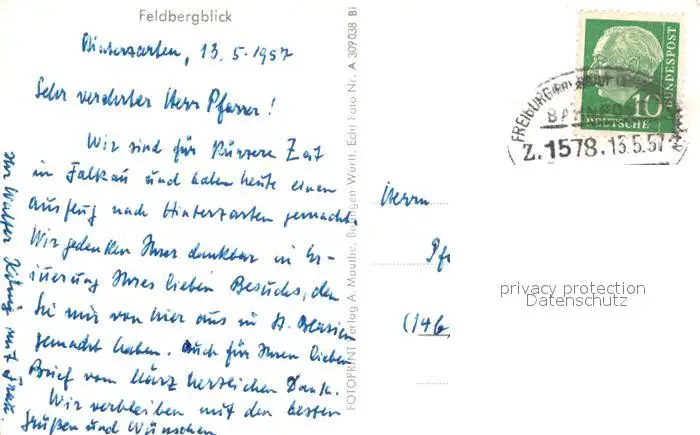 Feldbergblick
Hinterzarten, 13.5.1957
Sehr verehrter Herr Pfarrer!
Wir sind für kürzere Zeit
in Falkau und haben heute einen
Ausflug nach Hinterzarten gemacht.
Wir gedenken Ihrer dankbar in Er-
innerung Ihres lieben Besuchs, den
Sie mir von hier aus in St. Blasien
gemacht haben. Auch für Ihren lieben
Brief vom März herzlichen Dank.
Wir verbleiben mit den besten
Grüßen und Wünschen
Ihr Walter König mit Frau.
FOTOPRINT Verlag A. Mauthe, Balingen Württ. Echt Foto Nr. A 309 038 Bi
Herrn
Pf
(14b
DEUTSCHE
BUNDESPOST
10
FREIBURG
BAHNPOST
Z.1578.13.5.57
privacy protection
Datenschutz